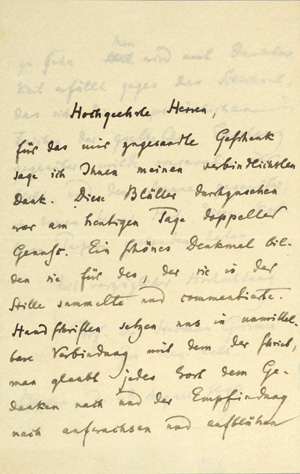 Hochgeehrte Herren,
für das mir zugesandte Geschenk
sage ich Ihnen meinen verbindlichsten
Dank. Diese Blätter durchzusehen
war am heutigen Tage doppelter
Genuss. Ein schönes Denkmal bil-
den sie für den, der sie in der
Stille sammelte und commentirte.
Handschriften setzen uns in unmittel-
bare Verbindung mit dem der schrieb,
man glaubt jedes Wort dem Ge-
danken nach und der Empfindung
nach aufwachsen und aufblühen